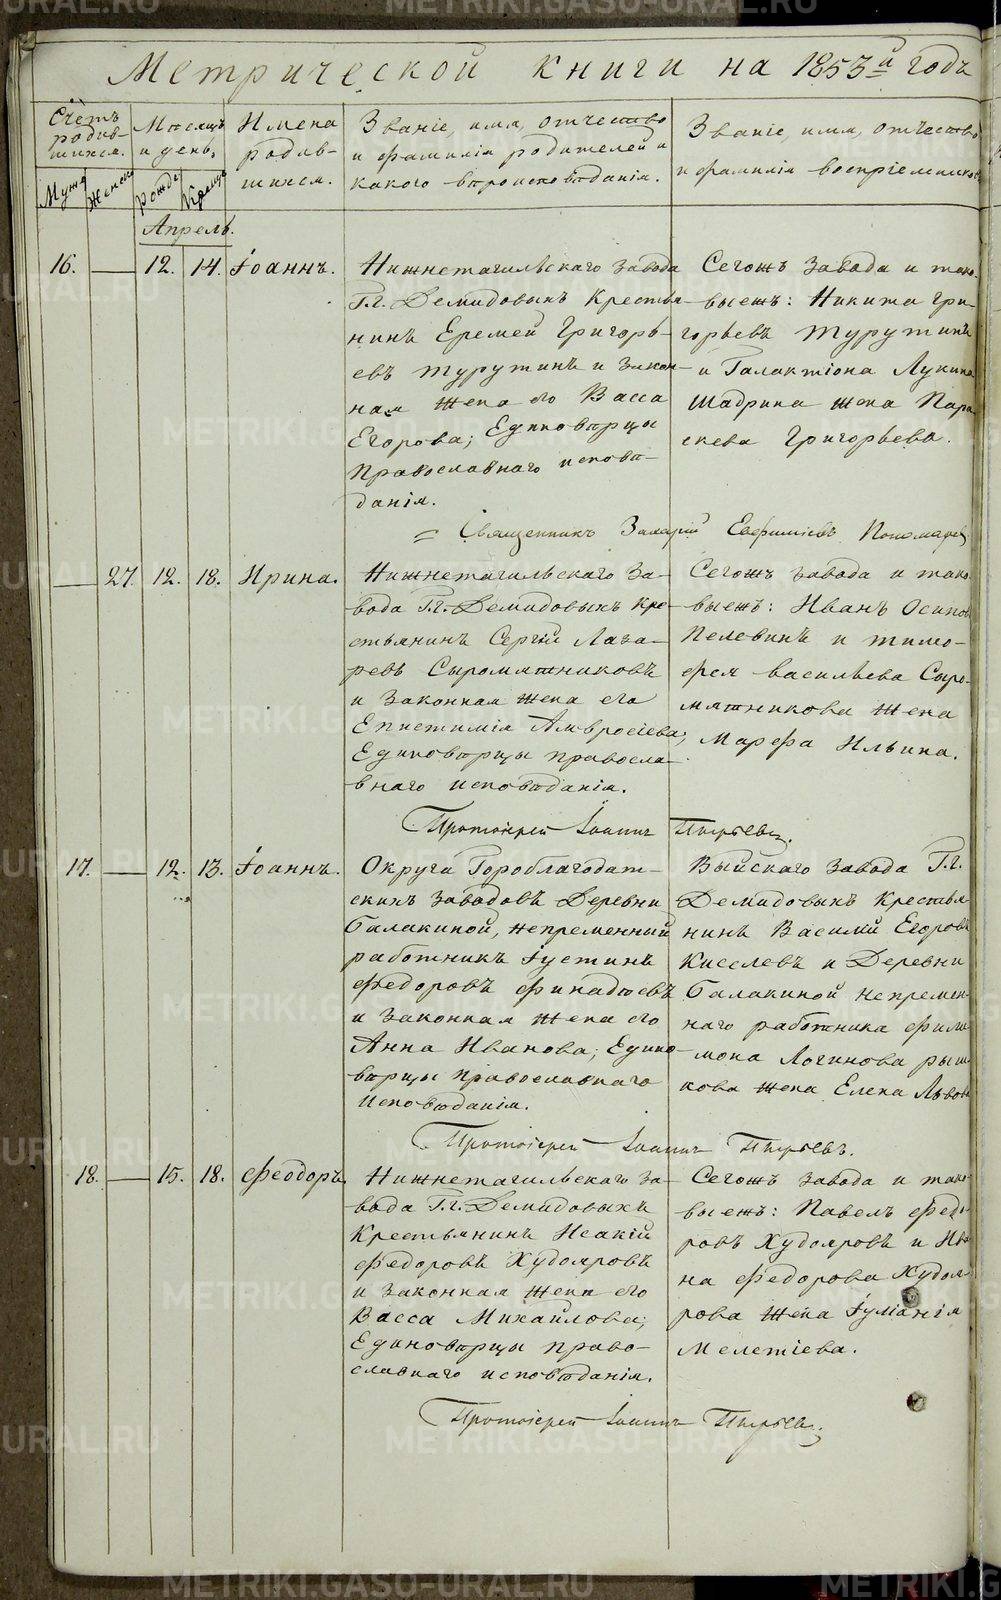 Метрической книги на 1853й годъ
Счетъ родив-
шихся.
Мужс
Женск
Мѣсяцъ
и день.
рожде
Крещ
Имена
родив-
шихся.
Званіе, имя, отчество
и фамилія родителей и
какого вѣроисповѣданія.
Званіе, имя, отчество
и фамилія воспріемниковъ
Апрель.
16. — 12. 14. Іоаннъ.
Нижнетагильскаго завода
Г.г. Демидовыхъ Крестья-
нинъ Еремей Григорь-
евъ Турутинъ и закон-
ная жена его Васса
Егорова; Единоверцы
Православнаго исповѣ-
данія.
Сегожъ завода и тако-
выежъ: Никита Гри-
горьевъ Турутинъ
и Галактіона Лукина
Шадрина жена Пара
скева Григорьева.
= Священникъ Захарій Евфиміевъ Пономарев
— 27. 12. 18. Ирина.
Нижнетагильскаго за-
вода Г.г. Демидовыхъ кре-
стьянинъ Сергій Лаза-
ревъ Сыромятниковъ
и законная жена его
Епистимія Амвросіева;
Единоверцы правосла-
внаго исповѣданія.
Сегожъ завода и тако-
выежъ: Иванъ Осипов
Пелевинъ и тимо-
фея васильева Сыро-
мятникова жена
Марфа Ильина.
Протоіерей Іоаннъ Пырьевъ.
17. — 12. 13. Іоаннъ.
Округа Гороблагодат-
скихъ заводовъ Деревни
Балакиной, непременный
работникъ Іустинъ
Федоровъ Финадѣевъ
и законная жена его
Анна Иванова; Едино-
вѣрцы православнаго
Исповѣданія.
Выйскаго завода Г.г.
Демидовыхъ крестья-
нинъ Василій Егоровъ
Киселевъ и Деревни
Балакиной непремен-
наго работника фили-
мона Логинова рыш-
кова жена Елена Львова
Протоіерей Іоаннъ Пырьевъ.
18. — 15. 18. Феодоръ.
Нижнетагильскаго за-
вода Г.г. Демидовыхъ
Крестьянинъ Исакій
Федоровъ Худояровъ
и законная жена его
Васса Михайлова;
Единовѣрцы право-
славнаго исповѣданія.
Сегожъ завода и тако-
выежъ: Павелъ Федо-
ровъ Худояровъ и Ива
на Федорова Худоя-
рова жена Іуліанія
Мелетіева.
Протоіерей Іоаннъ Пырьевъ.
METRIKI.GASO-URAL.RU